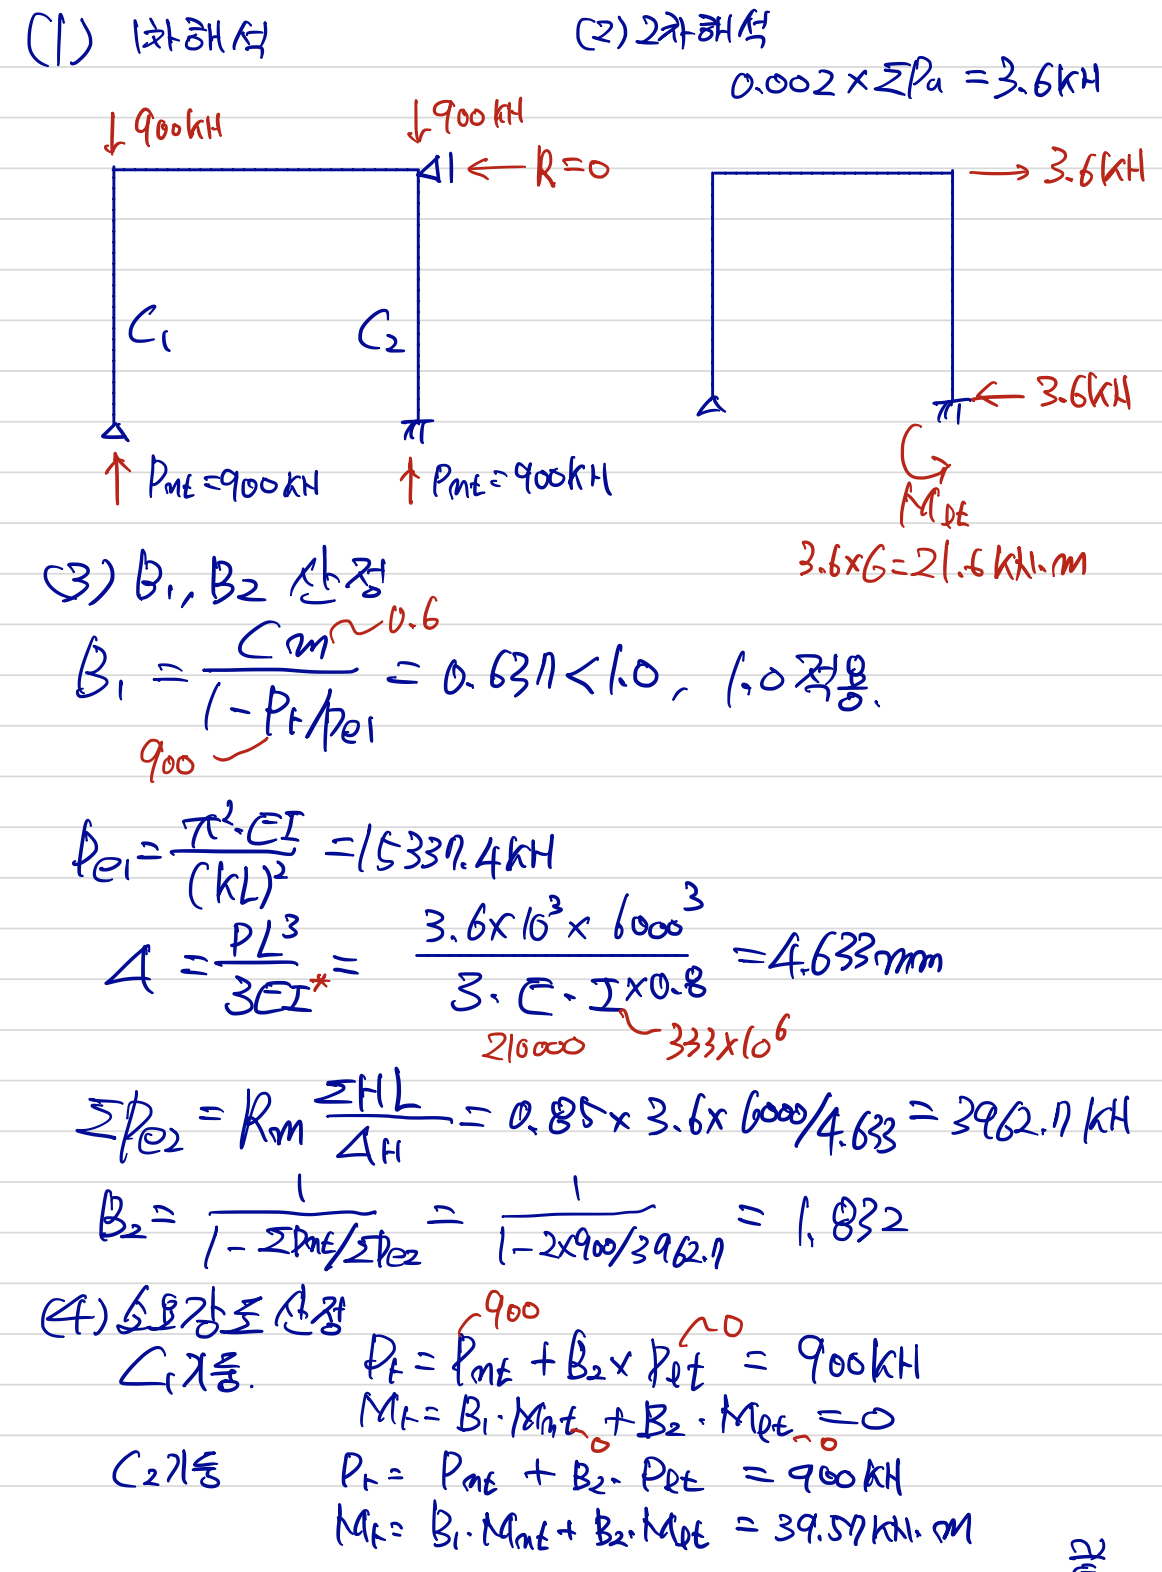 (1) 1차해석
(2) 2차해석
0.002 × ΣPa = 3.6kN
↓ 900kN
↓ 900kN
← R=0
→ 3.6kN
C₁
C₂
← 3.6kN
↑ Pnt = 900kN
↑ Pnt = 900kN
Mlt
3.6×6 = 21.6 kN·m
(3) B₁, B₂ 산정
B₁ = Cm / (1 - Pr/Pe1) = 0.637 < 1.0, 1.0 적용.
0.6
900
Pe1 = π²·EI / (KL)² = 15337.4kN
Δ = PL³ / 3EI* = 3.6×10³ × 6000³ / 3·E·I×0.8 = 4.633mm
210000
333×10⁶
ΣPe2 = Rm ΣHL / ΔH = 0.85 × 3.6 × 6000/4.633 = 3962.7 kN
B₂ = 1 / (1 - ΣPnt/ΣPe2) = 1 / (1 - 2×900/3962.7) = 1.832
(4) 소요강도 산정
900
0
C₁기둥. Pr = Pnt + B₂ × Plt = 900kN
Mr = B₁·Mnt + B₂·Mlt = 0
0
0
C₂기둥 Pr = Pnt + B₂·Plt = 900kN
Mr = B₁·Mnt + B₂·Mlt = 39.57kN·m
끝